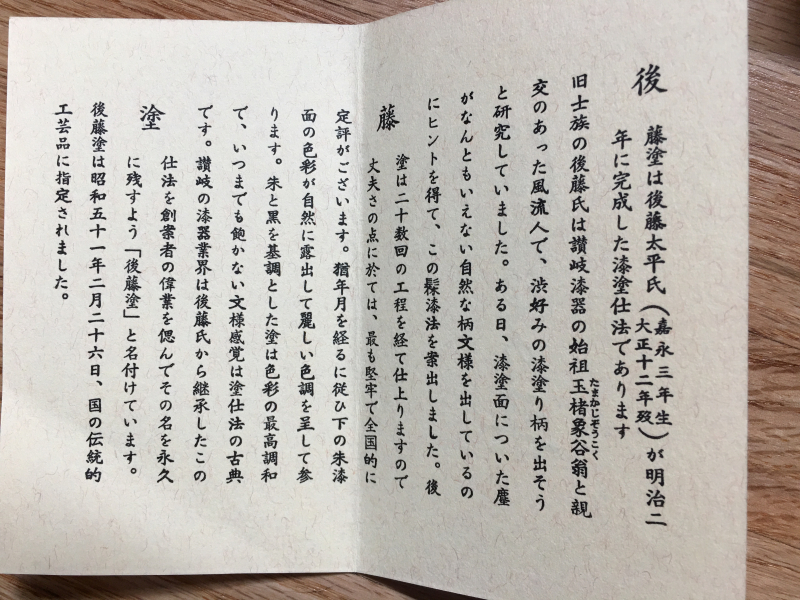 後
藤塗は後藤太平氏(嘉永三年生 大正十二年歿)が明治二
年に完成した漆塗仕法であります
たまかじぞうこく
旧士族の後藤氏は讃岐漆器の始祖玉楮象谷翁と親
交のあった風流人で、渋好みの漆塗り柄を出そう
と研究していました。ある日、漆塗面についた塵
がなんともいえない自然な柄文様を出しているの
にヒントを得て、この髹漆法を案出しました。後
藤
塗は二十数回の工程を経て仕上りますので
丈夫さの点に於ては、最も堅牢で全国的に
定評がございます。猶年月を経るに従ひ下の朱漆
面の色彩が自然に露出して麗しい色調を呈して参
ります。朱と黒を基調とした塗は色彩の最高調和
で、いつまでも飽かない文様感覚は塗仕法の古典
です。讃岐の漆器業界は後藤氏から継承したこの
塗
仕法を創案者の偉業を偲んでその名を永久
に残すよう「後藤塗」と名付けています。
後藤塗は昭和五十一年二月二十六日、国の伝統的
工芸品に指定されました。